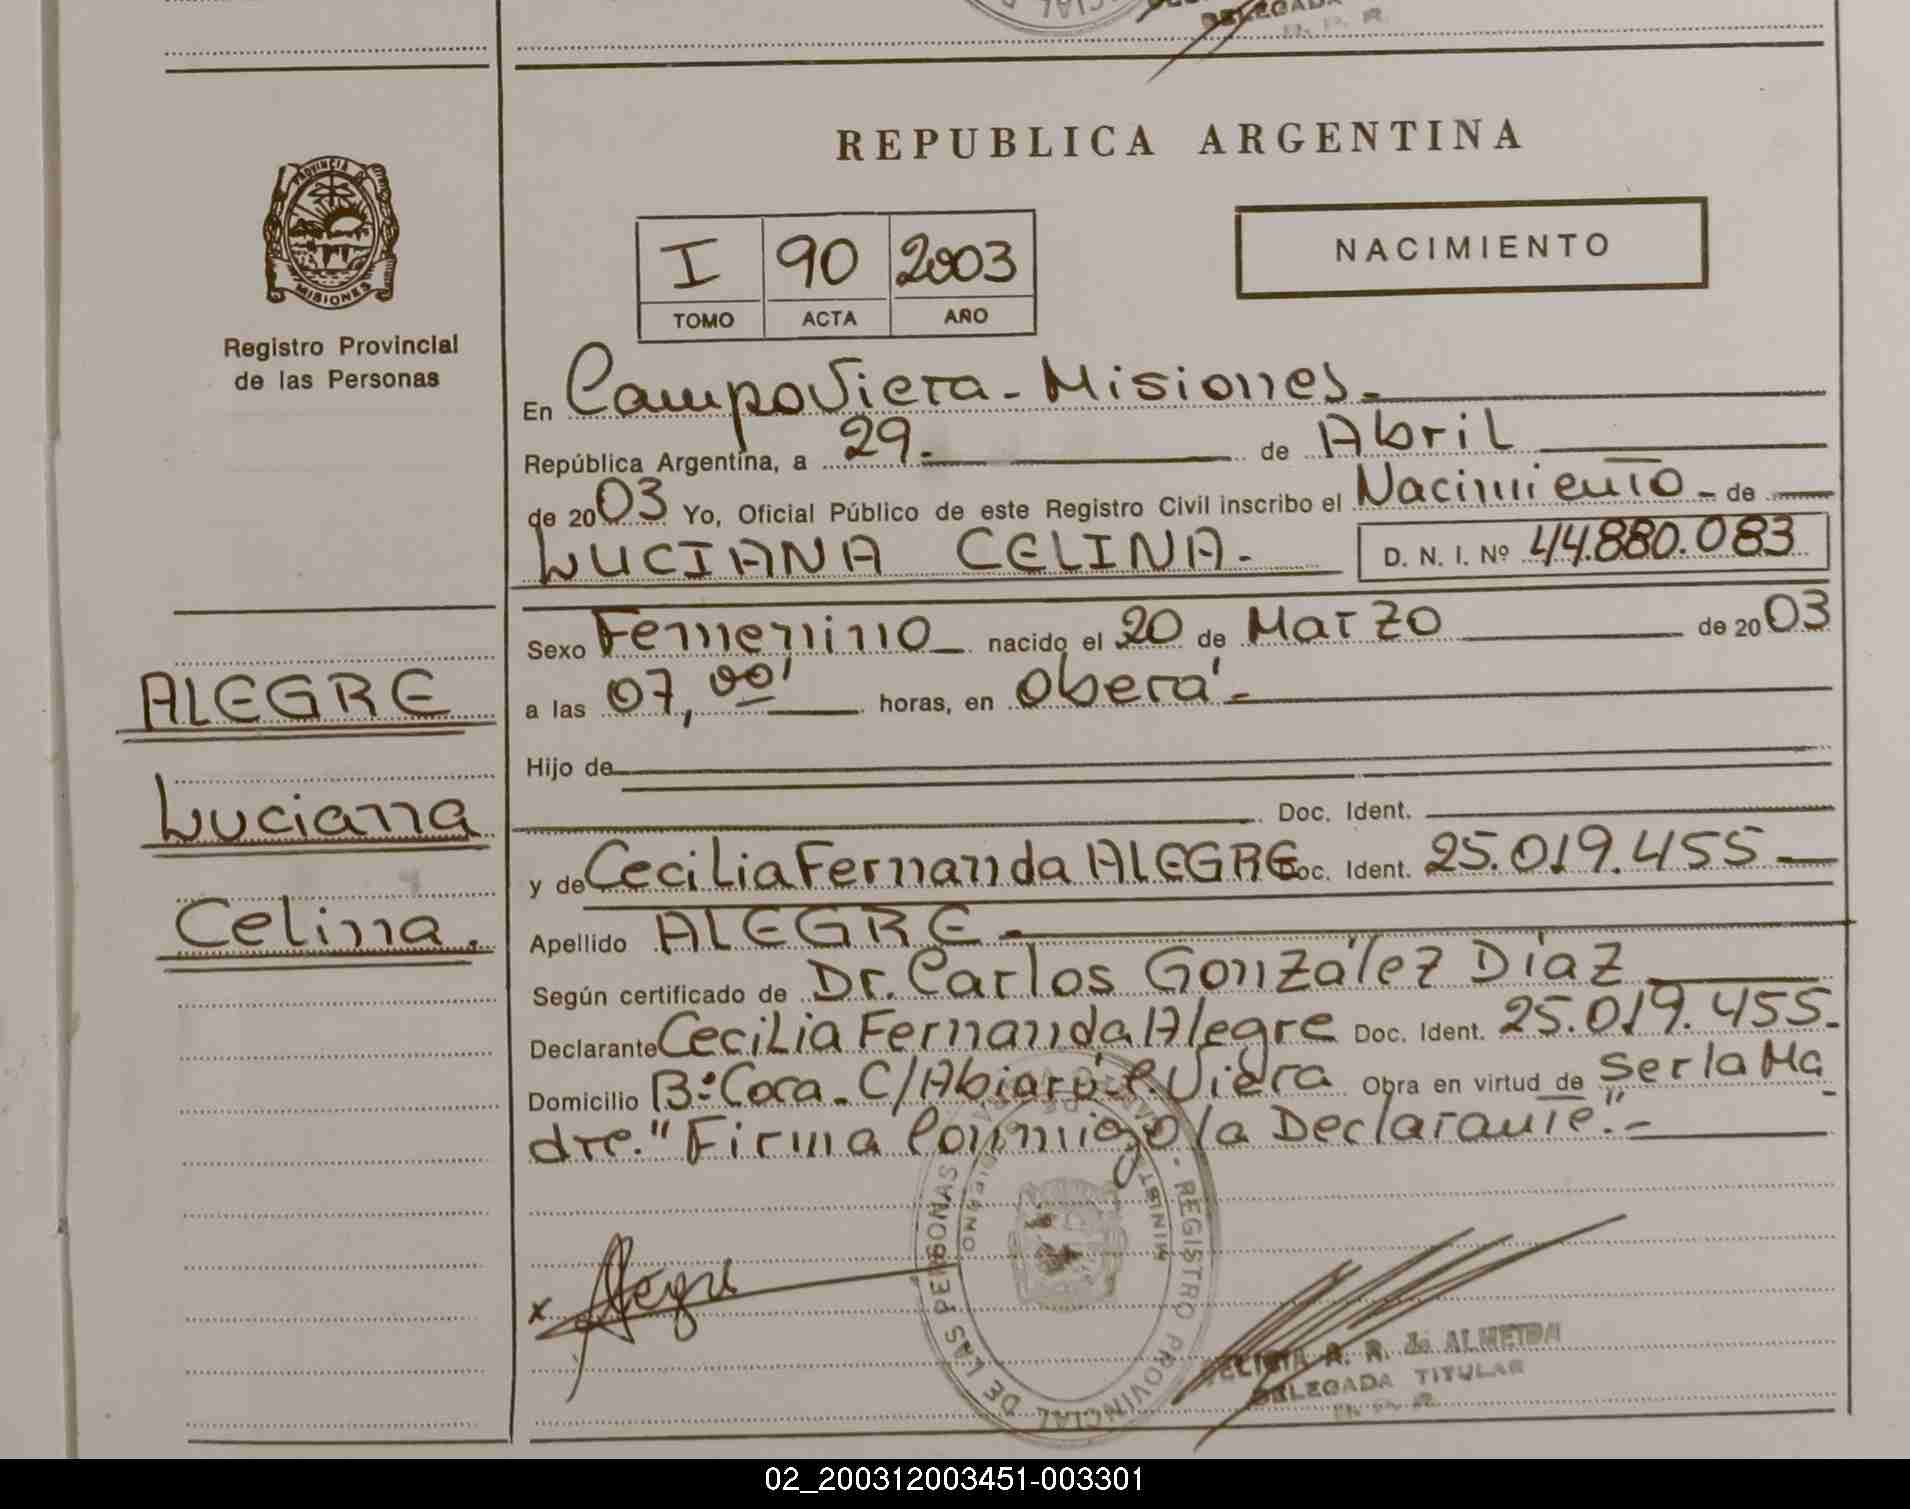 DELEGADA
REPUBLICA ARGENTINA
PROVINCIA DE
MISIONES
Registro Provincial
de las Personas
I 90 2003
TOMO ACTA AÑO
NACIMIENTO
En Campo Viera - Misiones.
República Argentina, a 29. de Abril
de 2003 Yo, Oficial Público de este Registro Civil inscribo el Nacimiento - de
LUCIANA CELINA.- D. N. I. Nº 44.880.083
Sexo Femenino nacido el 20 de Marzo de 2003
a las 07,00' horas, en Oberá.-
ALEGRE
Luciana
Celina.
Hijo de
Doc. Ident.
y de Cecilia Fernanda ALEGRE Doc. Ident. 25.019.455 -
Apellido ALEGRE -
Según certificado de Dr. Carlos González Díaz
Declarante Cecilia Fernanda Alegre Doc. Ident. 25.019.455.-
Domicilio Bº: Coca - C/Abiarú e Viera Obra en virtud de Ser la Ma
dre. "Firma Conmigo la Declarante".-
x Alegre
REGISTRO PROVINCIAL DE LAS PERSONAS
R. R. de ALMEIDA
DELEGADA TITULAR
02_200312003451-003301